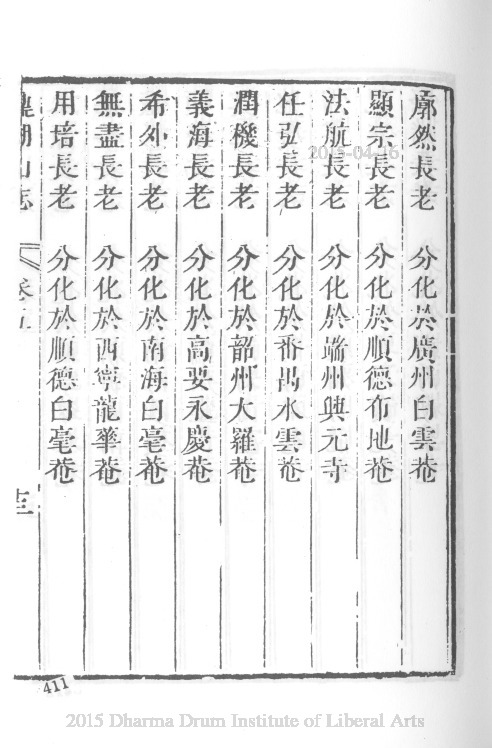 廓然長老 分化於廣州白雲菴
顯宗長老 分化於順德布地菴
法航長老 分化於端州興元寺
任弘長老 分化於番禺水雲菴
潤機長老 分化於韶州大羅菴
義海長老 分化於高要永慶菴
希外長老 分化於南海白毫菴
無盡長老 分化於西寧龍華菴
用培長老 分化於順德白毫菴
湖山志 卷五 十三
411
2015 Dharma Drum Institute of Liberal Arts